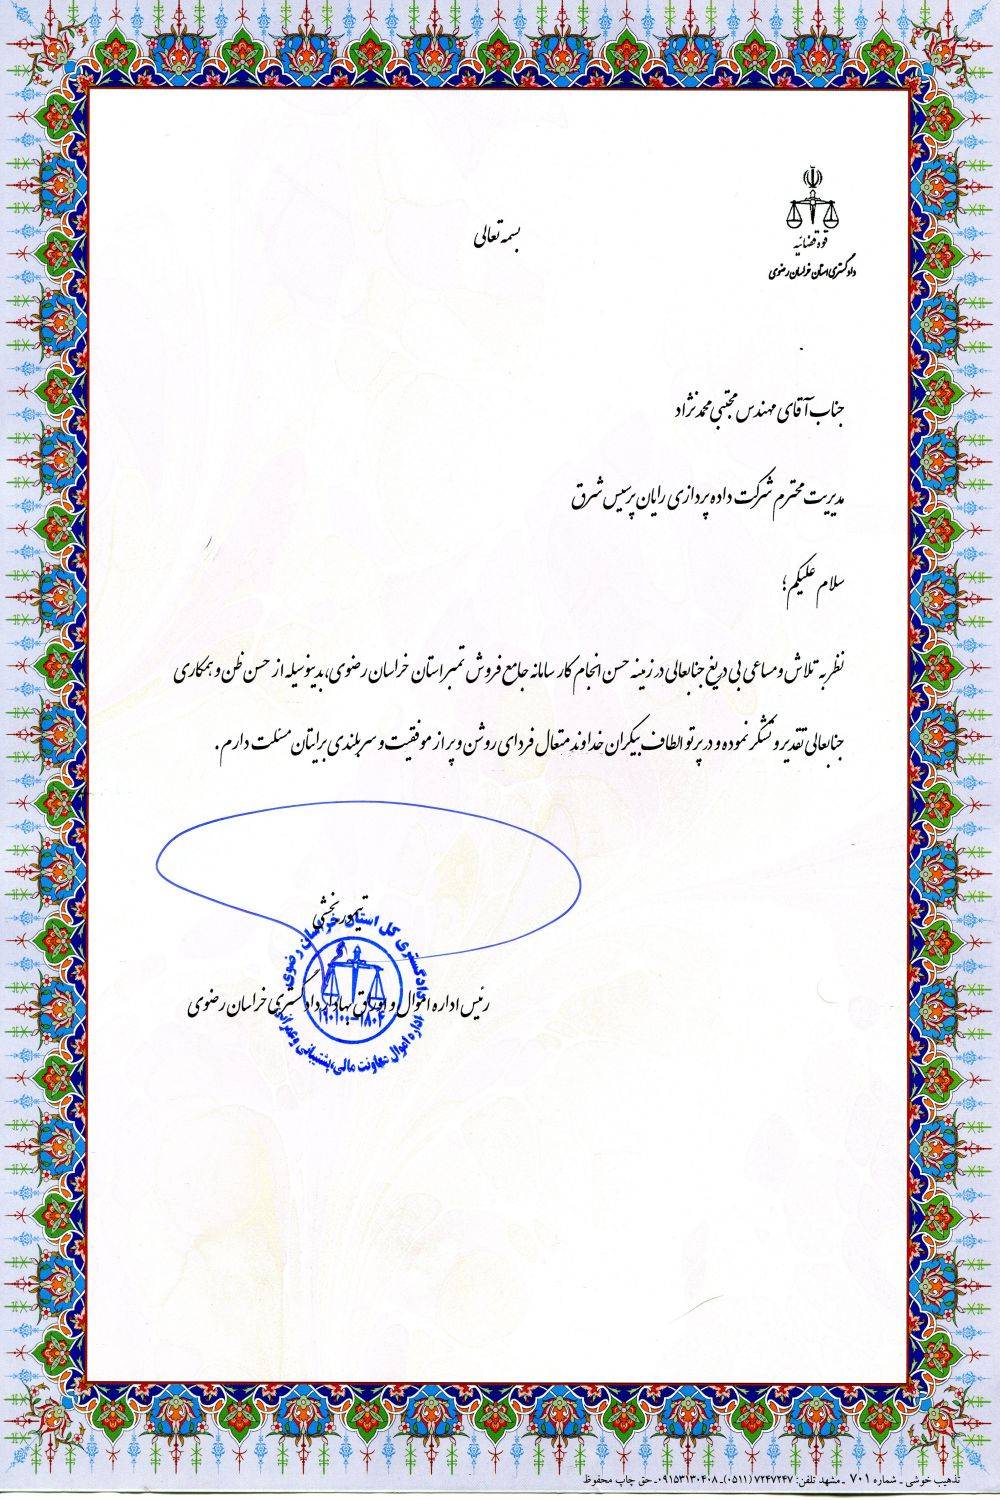 بسمه تعالی
قوه قضائیه
دادگستری استان خراسان رضوی
جناب آقای مهندس مجتبی محمدنژاد
مدیریت محترم شرکت داده پردازی رایان پرسیس شرق
سلام علیکم؛
نظر به تلاش و مساعی بی دریغ جنابعالی در زمینه حسن انجام کار سامانه جامع فروش تمبر استان خراسان رضوی، بدینوسیله از حسن ظن و همکاری
جنابعالی تقدیر و تشکر نموده و در پرتو الطاف بیکران خداوند متعال فردای روشن و پر از موفقیت و سربلندی برایتان مسئلت دارم.
تیمور بخشی
رئیس اداره اموال و اوراق بهادار دادگستری خراسان رضوی
دادگستری کل استان خراسان رضوی
اداره اموال معاونت مالی، پشتیبانی و
تذهیب خوشی - شماره ۷۰۱ - مشهد تلفن: ۷۲۴۷۲۴۷ (۰۵۱۱) - ۰۹۱۵۳۱۳۰۴۰۸ - حق چاپ محفوظ